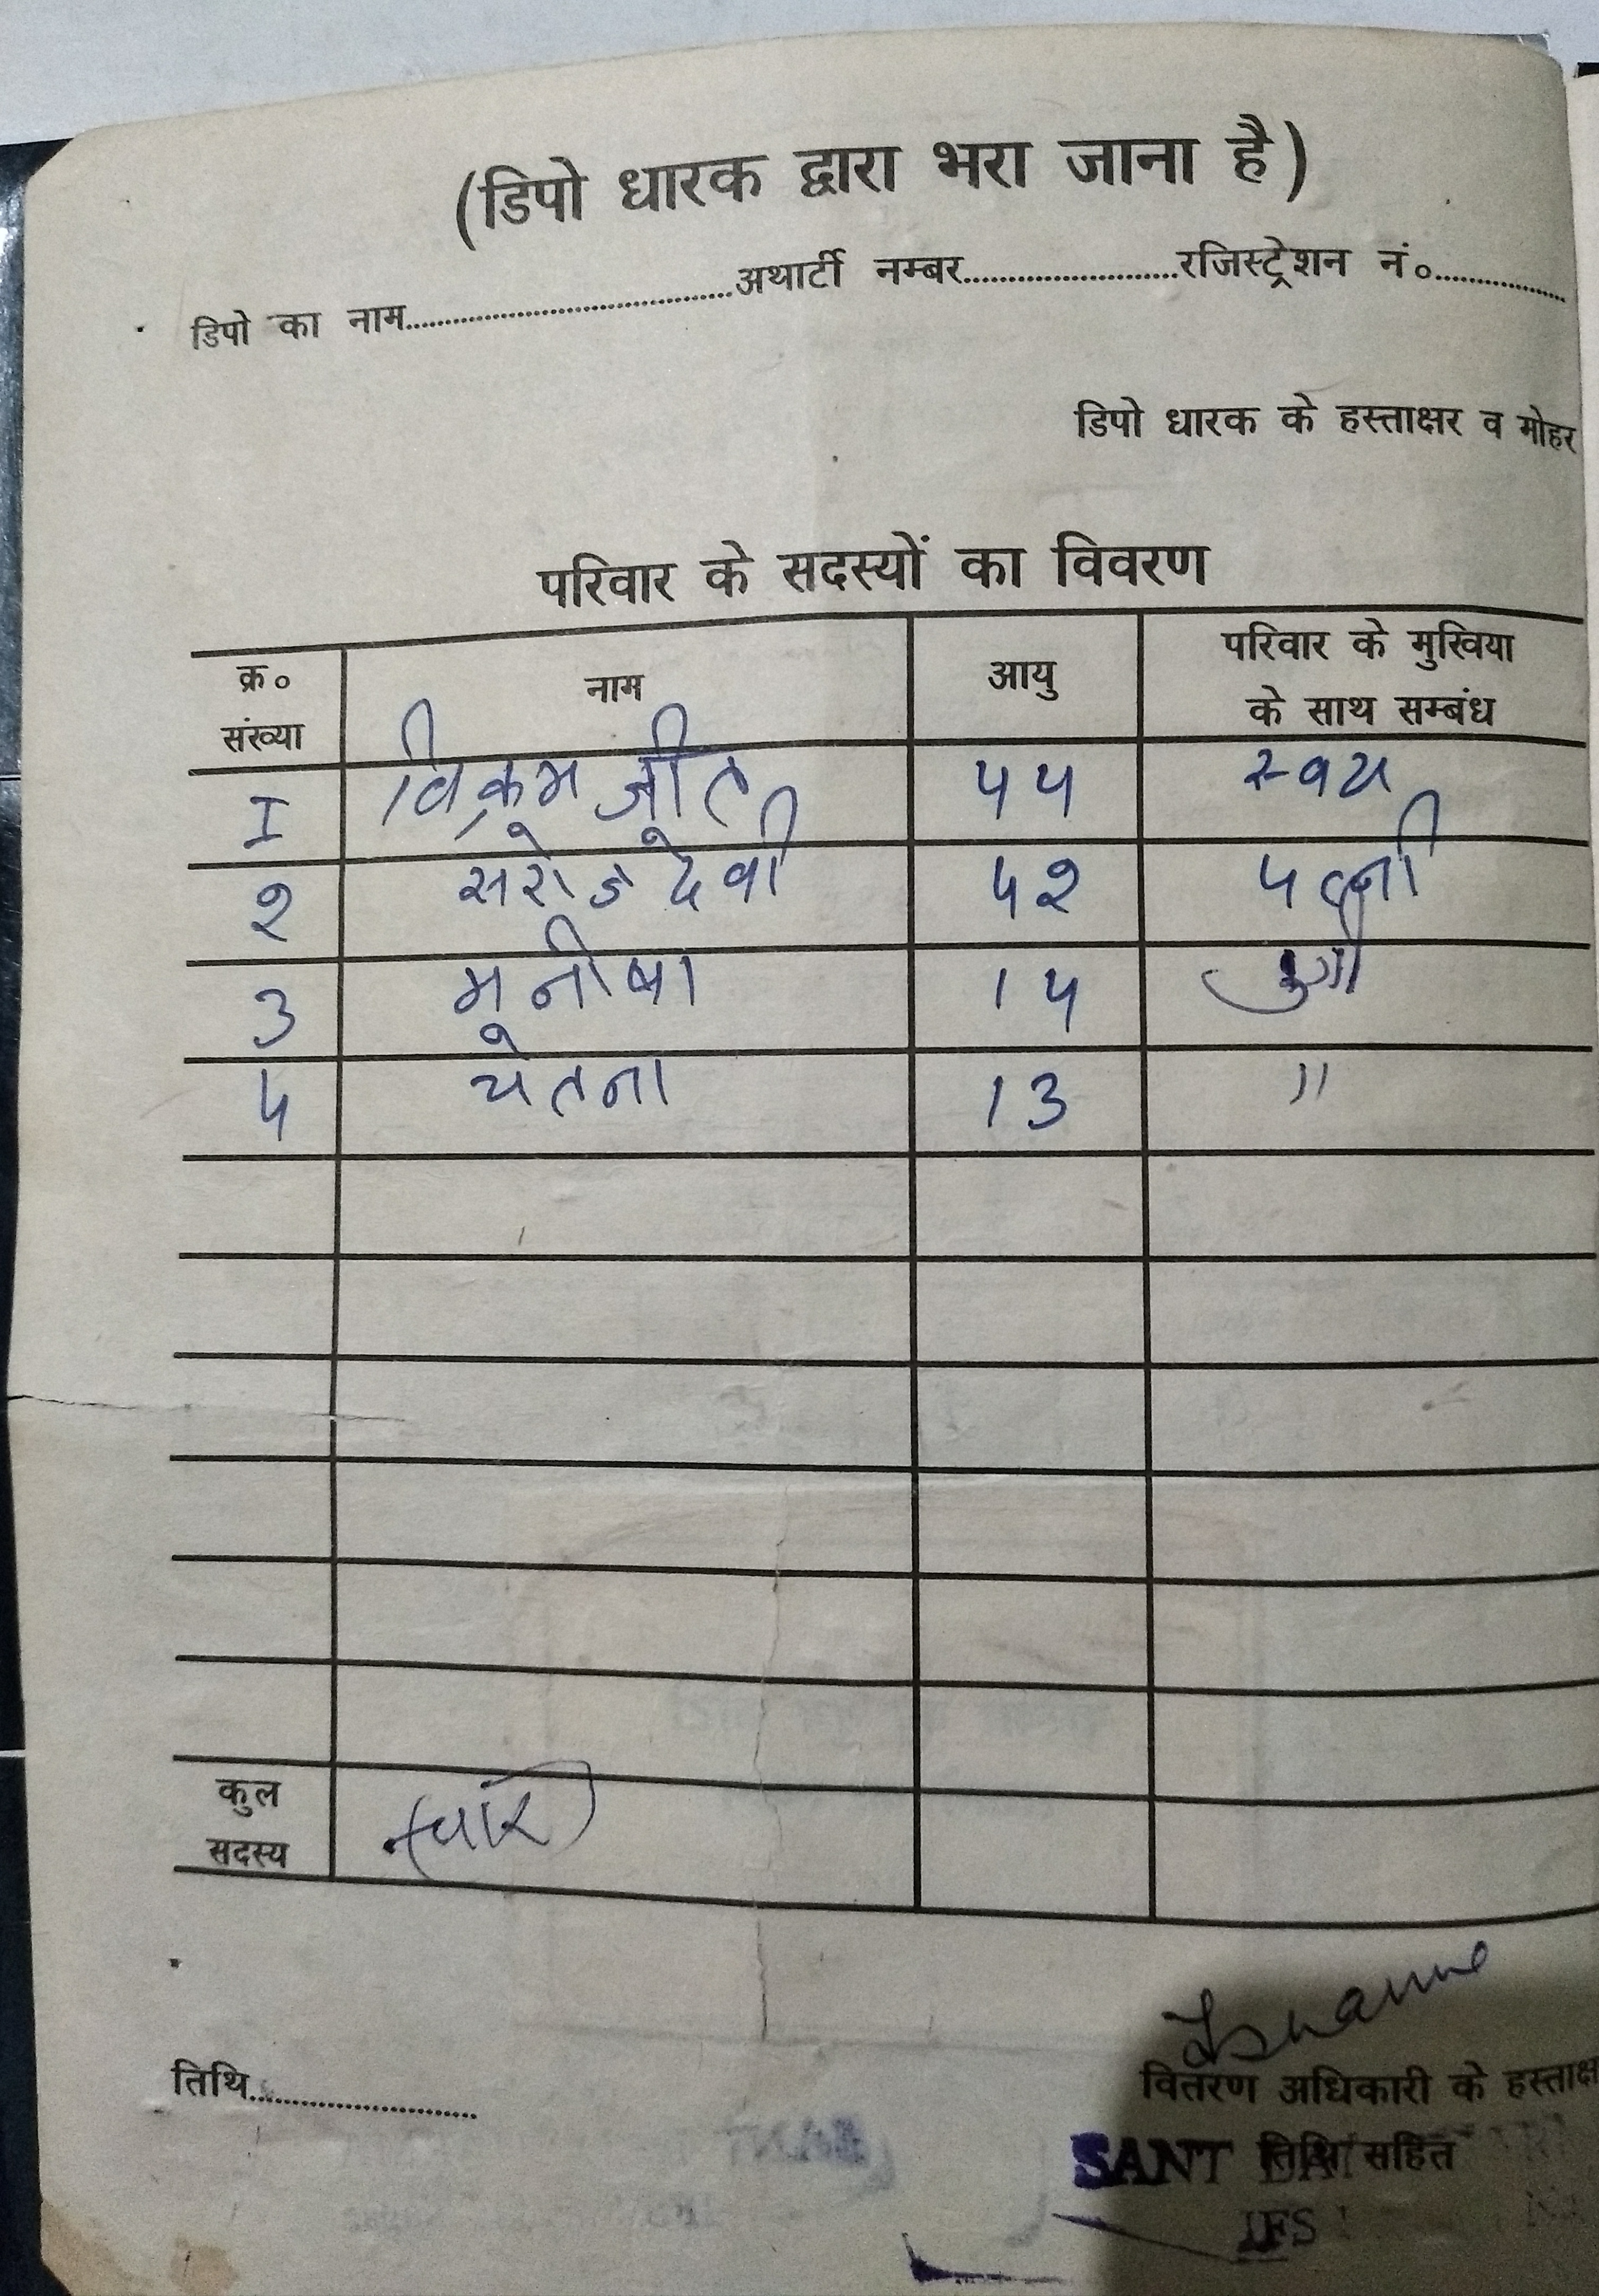 (डिपो धारक द्वारा भरा जाना है)
डिपो का नाम..............................अथार्टी नम्बर....................रजिस्ट्रेशन नं०............
डिपो धारक के हस्ताक्षर व मोहर
परिवार के सदस्यों का विवरण
क्र० संख्या नाम आयु परिवार के मुखिया के साथ सम्बंध
1 विक्रम जीत 44 स्वय
२ सरोज देवी 4२ पत्नी
3 मनीषा 14 पुत्री
4 चेतना 13 "
कुल सदस्य चार
तिथि....................
वितरण अधिकारी के हस्ताक्ष
तिथि सहित
SANT
IFS